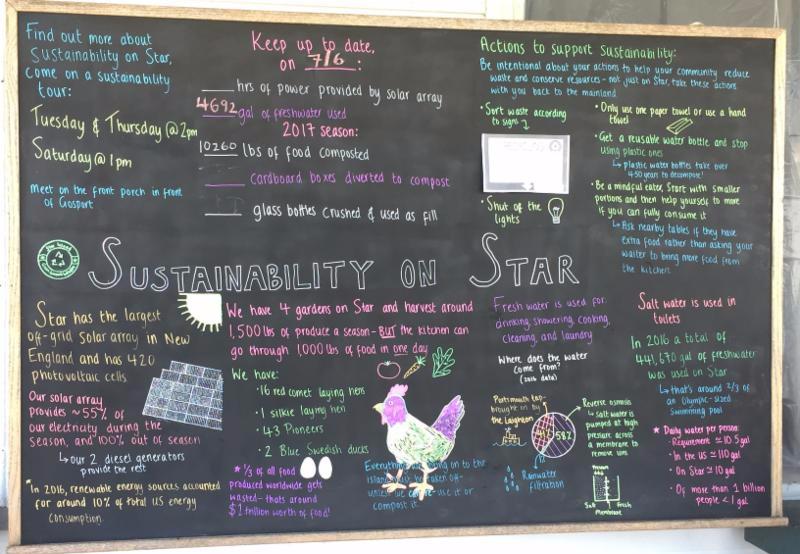 Find out more about
Sustainability on Star,
come on a sustainability
tour:
Tuesday & Thursday @ 2pm
Saturday @ 1pm
meet on the front porch in front
of Gosport
Keep up to date,
on 7/6:
hrs of power provided by solar array
4692 gal of freshwater used
2017 season:
10260 lbs of food composted
cardboard boxes diverted to compost
glass bottles crushed & used as fill
Actions to support sustainability:
Be intentional about your actions to help your community reduce
waste and conserve resources - not just on Star, take these actions
with you back to the mainland
• Sort waste according
to signs
• Shut of the
lights
• Only use one paper towel or use a hand
towel
• Get a reusable water bottle and stop
using plastic ones
↳ plastic water bottles take over
450 years to decompose!
• Be a mindful eater. Start with smaller
portions and then help yourself to more
if you can fully consume it
↳ Ask nearby tables if they have
extra food rather than asking your
waiter to bring more food from
the kitchen
SUSTAINABILITY ON STAR
Star has the largest
off-grid solar array in New
England and has 420
photovoltaic cells
Our solar array
provides ~55% of
our electricity during the
season, and 100% out of season
↳ our 2 diesel generators
provide the rest
*In 2016, renewable energy sources accounted
for around 10% of total US energy
consumption
We have 4 gardens on Star and harvest around
1,500 lbs of produce a season - BUT the kitchen can
go through 1,000 lbs of food in one day
We have:
• 16 red comet laying hens
• 1 silkie laying hen
• 43 Pioneers
• 2 Blue Swedish ducks
* 1/3 of all food
produced worldwide gets
wasted - thats around
$1 trillion worth of food!
Everything on to the
island off -
unless we use it or
compost it
Fresh water is used for:
drinking, showering, cooking,
cleaning, and laundry
Where does the water
come from?
Portsmouth tap -
brought in by
the Laighton
58%
Rainwater
filtration
Reverse osmosis
↳ Salt water is
pumped at high
pressure across
a membrane to
remove ions
Salt Fresh
Membrane
Salt water is used in
toilets
In 2016 a total of
441,670 gal of freshwater
was used on Star
↳ that's around 2/3 of
an Olympic-sized
swimming pool
* Daily water per person:
• Requirement ≈ 10.5 gal
• In the US ≈ 110 gal
• On Star ≈ 10 gal
• Of more than 1 billion
people < 1 gal